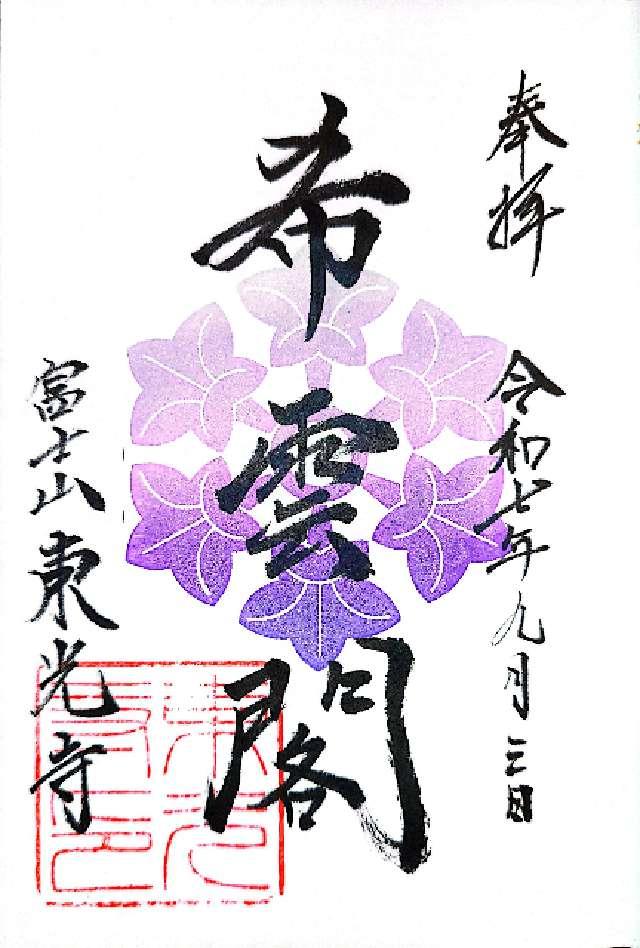 奉拝
令和七年九月三日
希雲閣
富士山東光寺
東光寺印